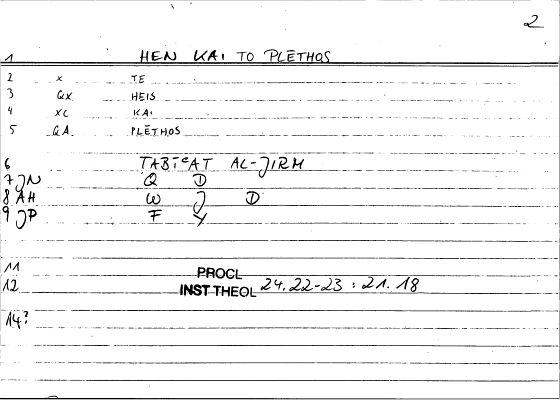 2
1 HEN KAI TO PLĒTHOS
2 x TE
3 QX HEIS
4 XC KAI
5 QA PLĒTHOS
6 TABĪʿAT AL-JIRM
7 JN Q D
8 AH W J D
9 JP F Y
11 PROCL
12 INST THEOL 24.22-23 : 21.18
14?